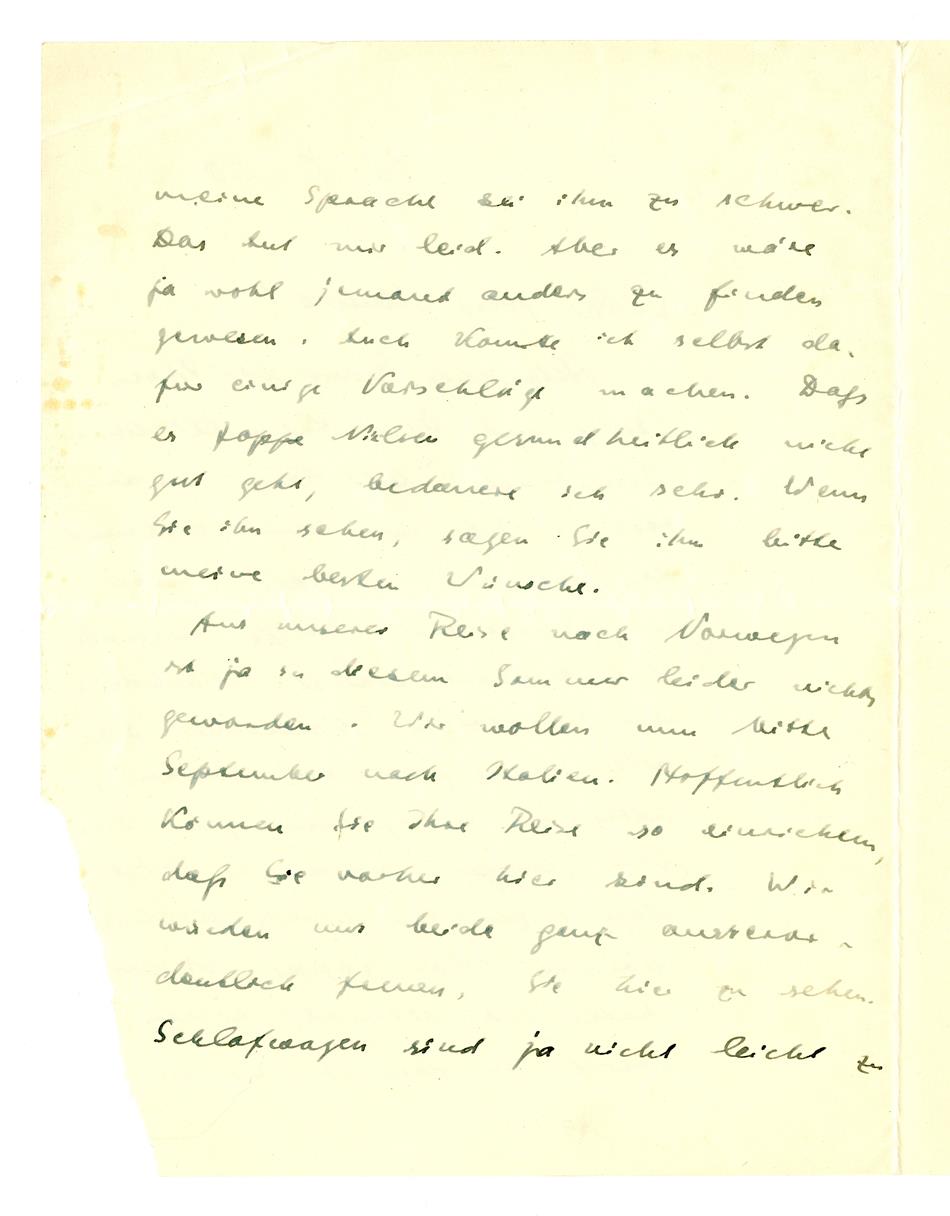 meine Sprache sei ihm zu schwer.
Das tut mir leid. Aber es wäre
ja wohl jemand anders zu finden
gewesen. Auch könnte ich selbst da-
für einige Vorschläge machen. Daß
es Hoppe Nielsen gesundheitlich nicht
gut geht, bedauere ich sehr. Wenn
Sie ihn sehen, sagen Sie ihm bitte
meine besten Wünsche.
Aus unserer Reise nach Norwegen
ist ja in diesem Sommer leider nichts
geworden. Wir wollen nun Mitte
September nach Italien. Hoffentlich
können Sie Ihre Reise so einrichten,
daß Sie vorher hier sind. Wir
würden uns beide ganz ausseror-
dentlich freuen, Sie hier zu sehen.
Schlafwagen sind ja nicht leicht zu